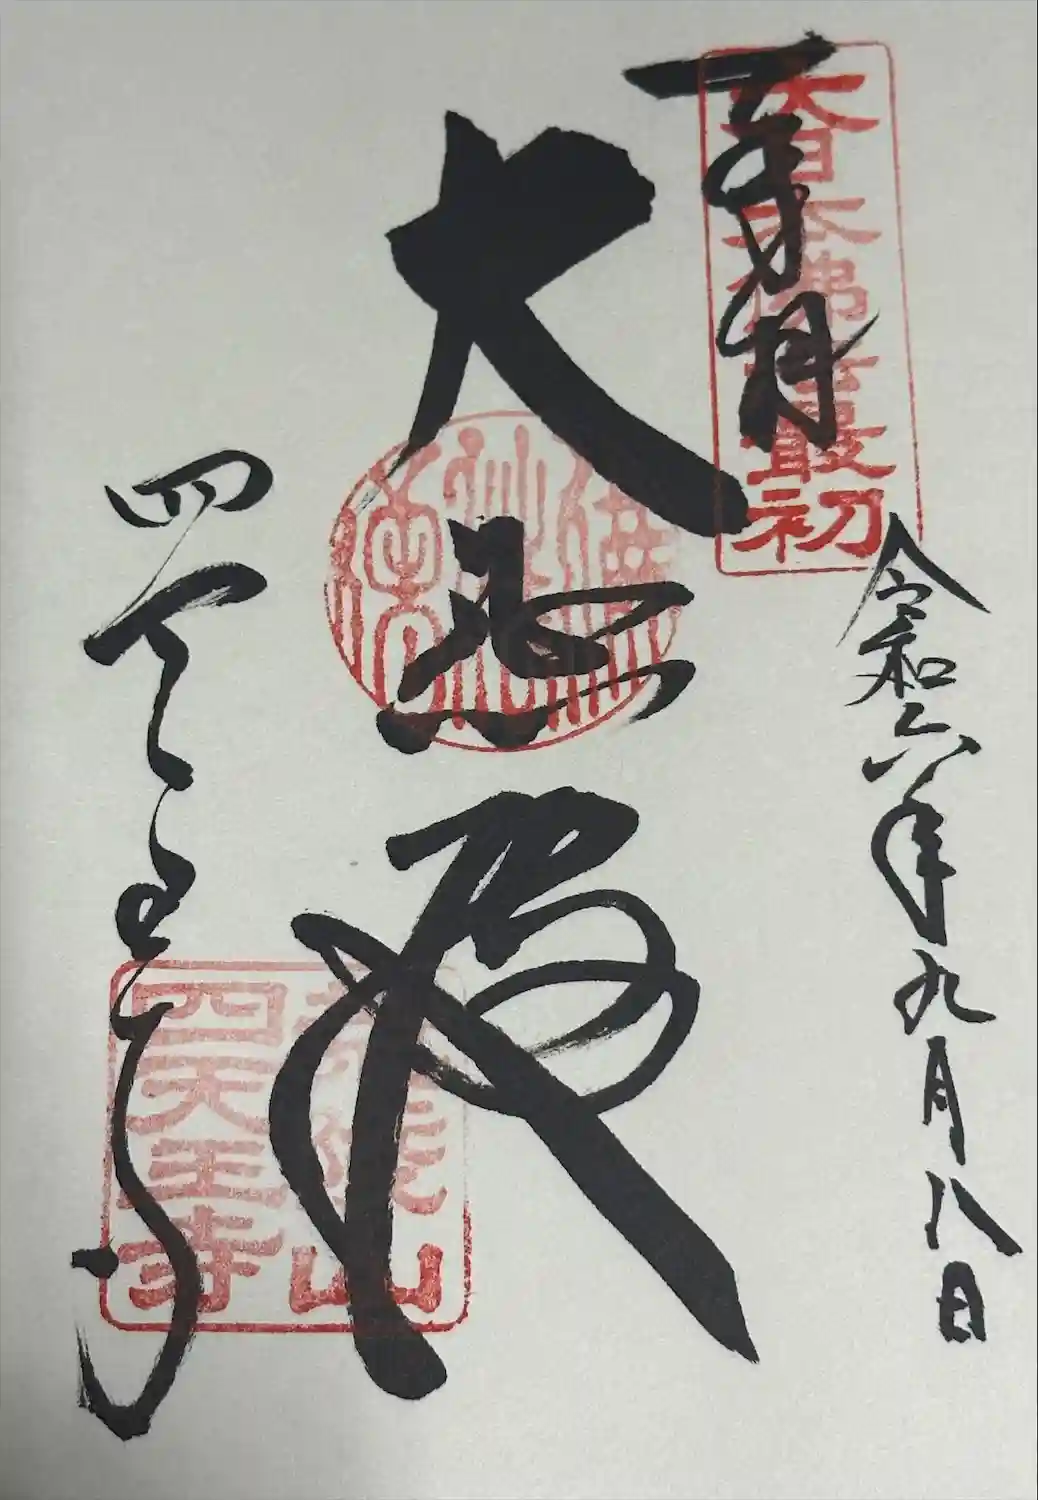 奉拝
大日本佛法最初
令和六年九月八日
大悲殿
四天王寺
荒陵山
四天王寺